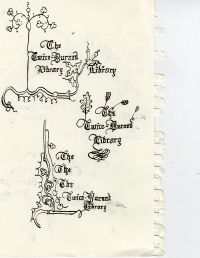 The
Twice-Burned
Library
Library
The
Twice-Burned
Library
The
The
The
Twice Burned
Library